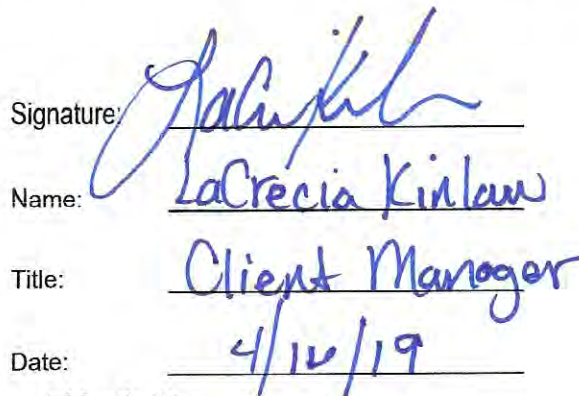 Signature:
Name: LaCrecia Kinlaw
Title: Client Manager
Date: 4/16/19